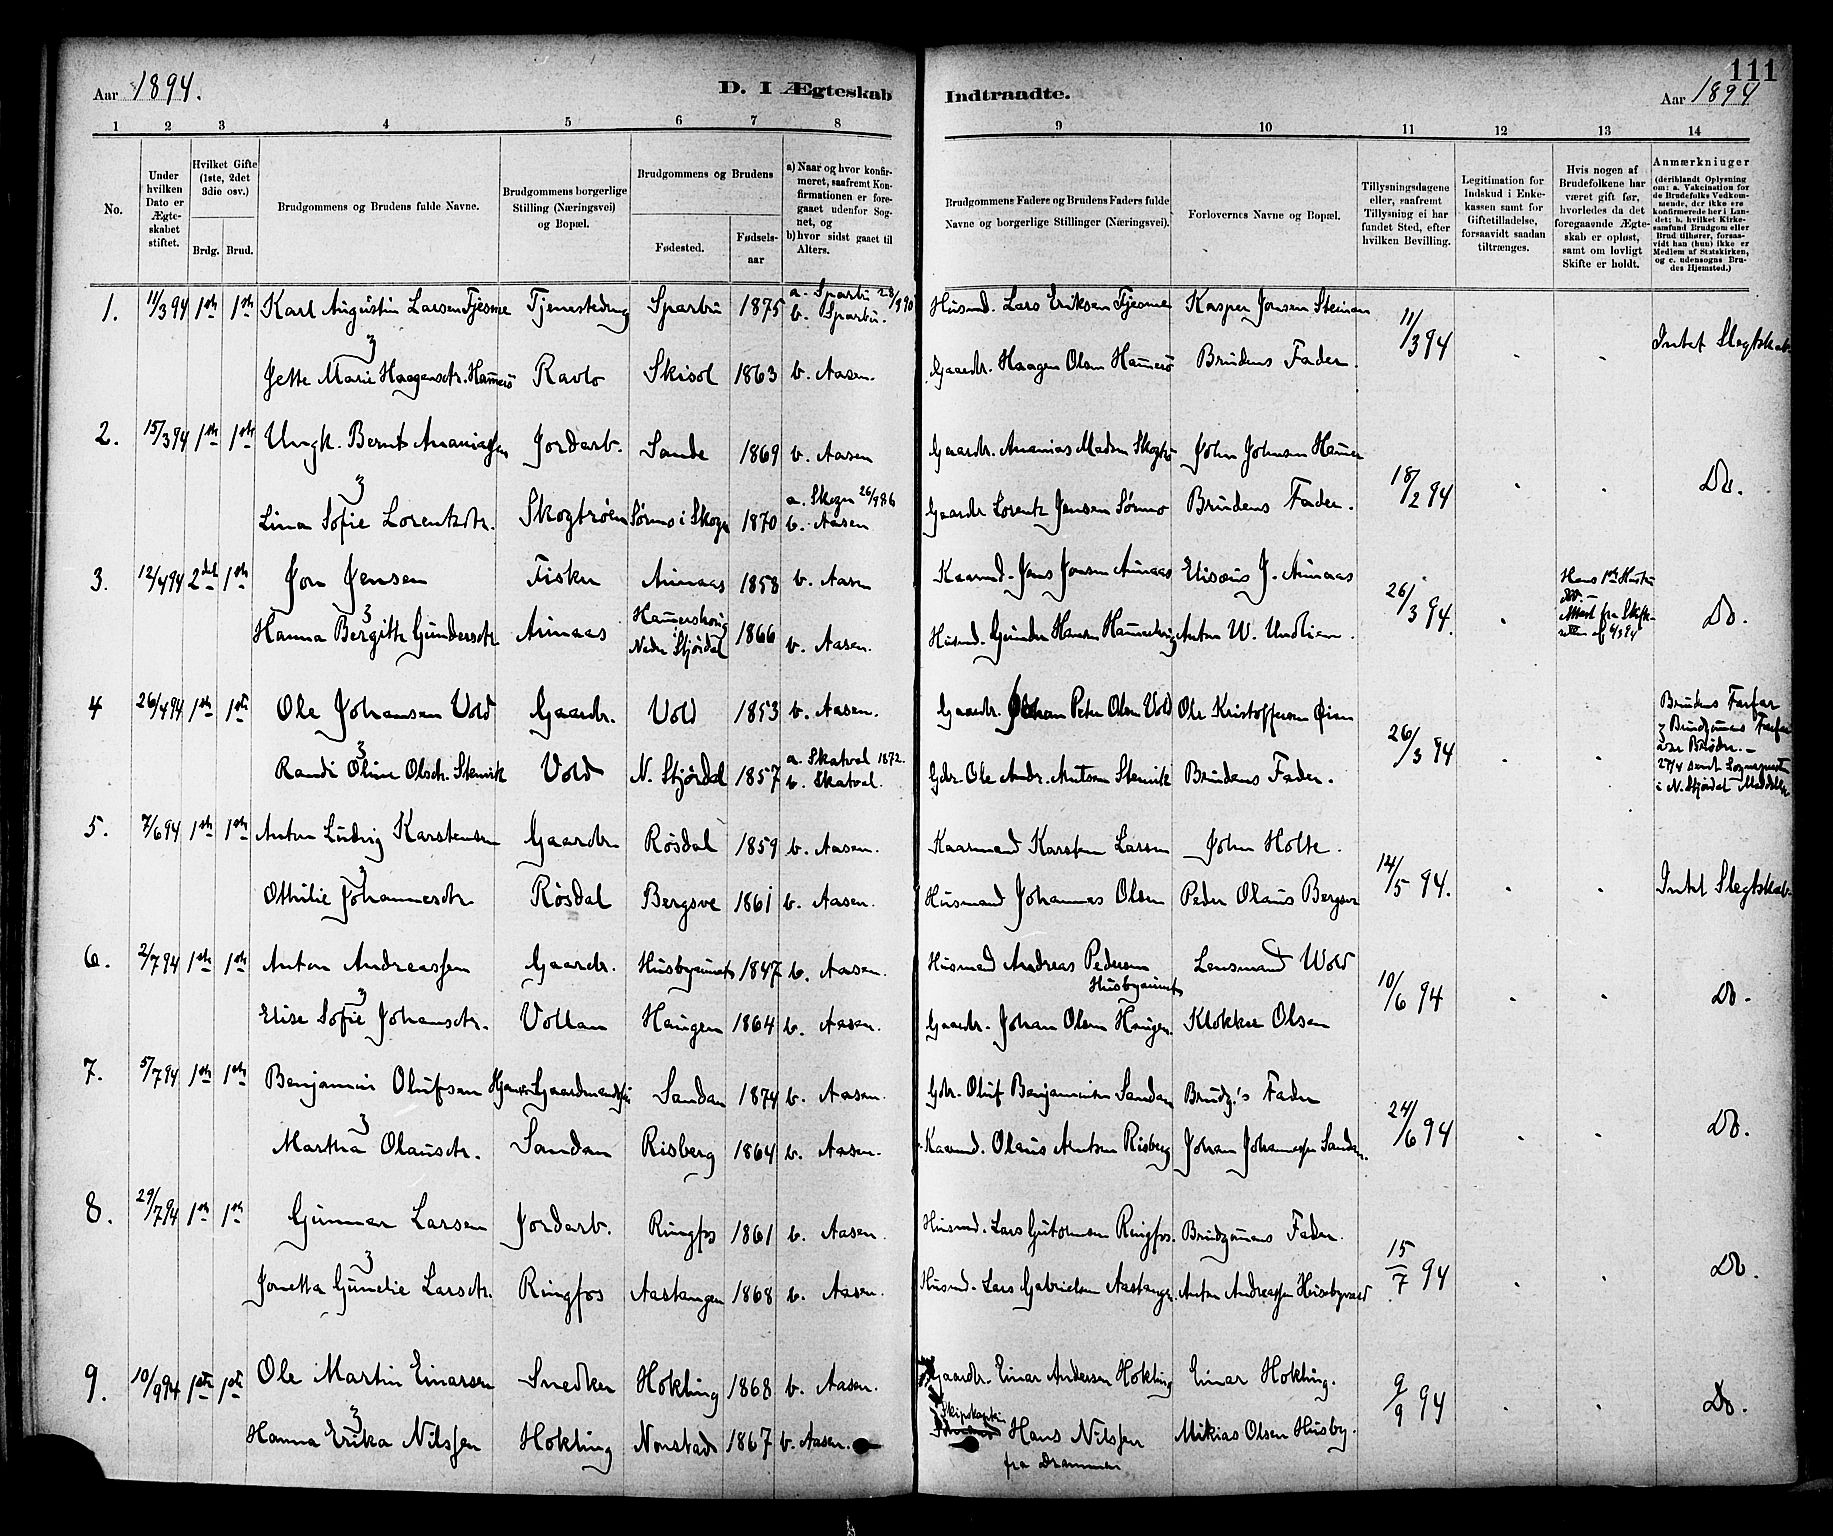 111
Aar 1894. D. I Ægteskab Indtraadte. Aar 1894
1 2 3 4 5 6 7 8 9 10 11 12 13 14
No.
Under hvilken Dato er Ægte- skabet stiftet.
Hvilket Gifte (1ste, 2det 3die osv.)
Brdg. Brud.
Brudgommens og Brudens fulde Navne.
Brudgommens borgerlige Stilling (Næringsvei) og Bopæl.
Brudgommens og Brudens
Fødested. Fødsels- aar
a) Naar og hvor konfir- meret, saafremt Kon- firmationen er fore- gaaet udenfor Sog- net, og b) hvor sidst gaaet til Alters.
Brudgommens Fadere og Brudens Faders fulde Navne og borgerlige Stillinger (Næringsvei).
Forlovernes Navne og Bopæl.
Tillysningsdagene eller, saafremt Tillysning ei har fundet Sted, efter hvilken Bevilling.
Legitimation for Indskud i Enke- kassen samt for Giftetilladelse, forsaavidt saadan tiltrænges.
Hvis nogen af Brudefolkene har været gift før, hvorledes da det foregaaende Ægte- skab er opløst, samt om lovligt Skifte er holdt.
Anmærkniuger (deriblandt Oplysning om: a. Vakcination for de Brudefolks Vedkom- mende, der ikke ere konfirmerede her i Lan- det; b. hvilket Kirke- samfund Brudgom eller Brud tilhører, forsaa- vidt han (hun) ikke er Medlem af Statskirken, og c. udensogns Bru- des Hjemsted.)
1. 11/3 94 1ste 1ste Karl Augustin Larsen Fjesme Tjenestedreng Sparbu 1875 a. Sparbu 28/9 90 b. Sparbu. Husmd. Lars Eriksen Fjesme Kasper Jonsen Steinan 11/3 94 Intet Slegtskab.
&
Jette Marie Haagensdtr. Hammerö Ravlo Skisol 1863 b. Aasen. Gaardr. Haagen Olsen Hammerö Brudens Fader.
2. 15/3 94 1ste 1ste Ungk. Bernt Ananiassen Jordarb. Sande 1869 b. Aasen Gaardr. Ananias Madsen Skogtrö John Johnsen Hammer 18/2 94 Do.
&
Lina Sofie Lorentsdtr. Skogtröen Sörmo i Skogn 1870 a. Skogn 26/9 86 b. Aasen Gaardr Lorentz Jensen Sörmo Brudens Fader.
3. 12/4 94 2det 1ste Jon Jensen Fisker Arinaas 1858 b. Aasen Kaarmd. Jens Jonsen Arinaas Elisæus J. Arinaas 26/3 94. Hans 1ste Hustru död. – Attest fra Skifte- retten af 4/3 94 Do.
&
Hanna Bergitte Gundersdtr Arinaas Nedre Stjördal 1866 b. Aasen. Husmd. Gunder Hansen Anton W. Undlien.
4 26/4 94 1ste 1ste Ole Johansen Vold Gaardr. Vold 1853 b. Aasen. Gaardr. Johan Peter Olsen Vold Ole Kristoffersen Öien 26/3 94 Brudens Farfar & Brudgommens Farfar vare Brödre. –
&
Randi Oline Olsdtr. Stenvik Vold N. Stjördal 1857 a. Skatval 1872. b. Skatval. Gdr. Ole Andr. Antsen Stenvik Brudens Fader. 27/4 sendt Sognepresten i N. Stjördal Meddelelse
5. 7/6 94 1ste 1ste Anton Ludvig Karstensen Gaardbr. Rösdal 1859 b. Aasen. Kaarmand Karsten Larsen John Holte. 14/5 94. Intet Slegtskab.
&
Othilie Johannesdtr Rösdal Bergsve 1861 b. Aasen. Husmand Johannes Olsen Peder Olaus Bergsve
6. 2/7 94 1ste 1ste Anton Andreassen Gaardr. Husbyaunet 1847 b. Aasen. Husmand Andreas Pedersen Husbyaunet Lensmand Wold 10/6 94 Do.
&
Elise Sofie Johansdtr. Vollan Haugen 1864 b. Aasen. Gaardr. Johan Olsen Haugen. Klokker Olsen
7. 5/7 94 1ste 1ste Benjamin Olufsen Gaardmandssön Sandan 1874 b. Aasen. Gdr. Oluf Benjaminsen Sandan Brudg.'s Fader 24/6 94 Do.
&
Martha Olausdtr. Sandan Risberg 1864 b. Aasen. Kaarmd. Olaus Antsen Risberg Johan Johannessen Sandan.
8. 29/7 94 1ste 1ste Gunnar Larsen Jordarb. Ringfos 1861 b. Aasen. Husmd. Lars Gutormsen Ringfos. Brudgommens Fader. 15/7 94 Do.
&
Jonetta Gundie Larsdtr. Ringfos Aastangen 1868 b. Aasen. Husmd. Lars Gabrielsen Aastangen. Anton Andreassen
9. 10/9 94 1ste 1ste Ole Martin Einarsen Snedker Hokling 1868 b. Aasen. Gaardr. Einar Andersen Hokling Einar Hokling. 9/9 94 Do.
&
Hanna Erika Nilssen Hokling Norstad 1867 b. Aasen. Skipskaptein Hans Nilssen fra Drammen Mikias Olsen Husby.